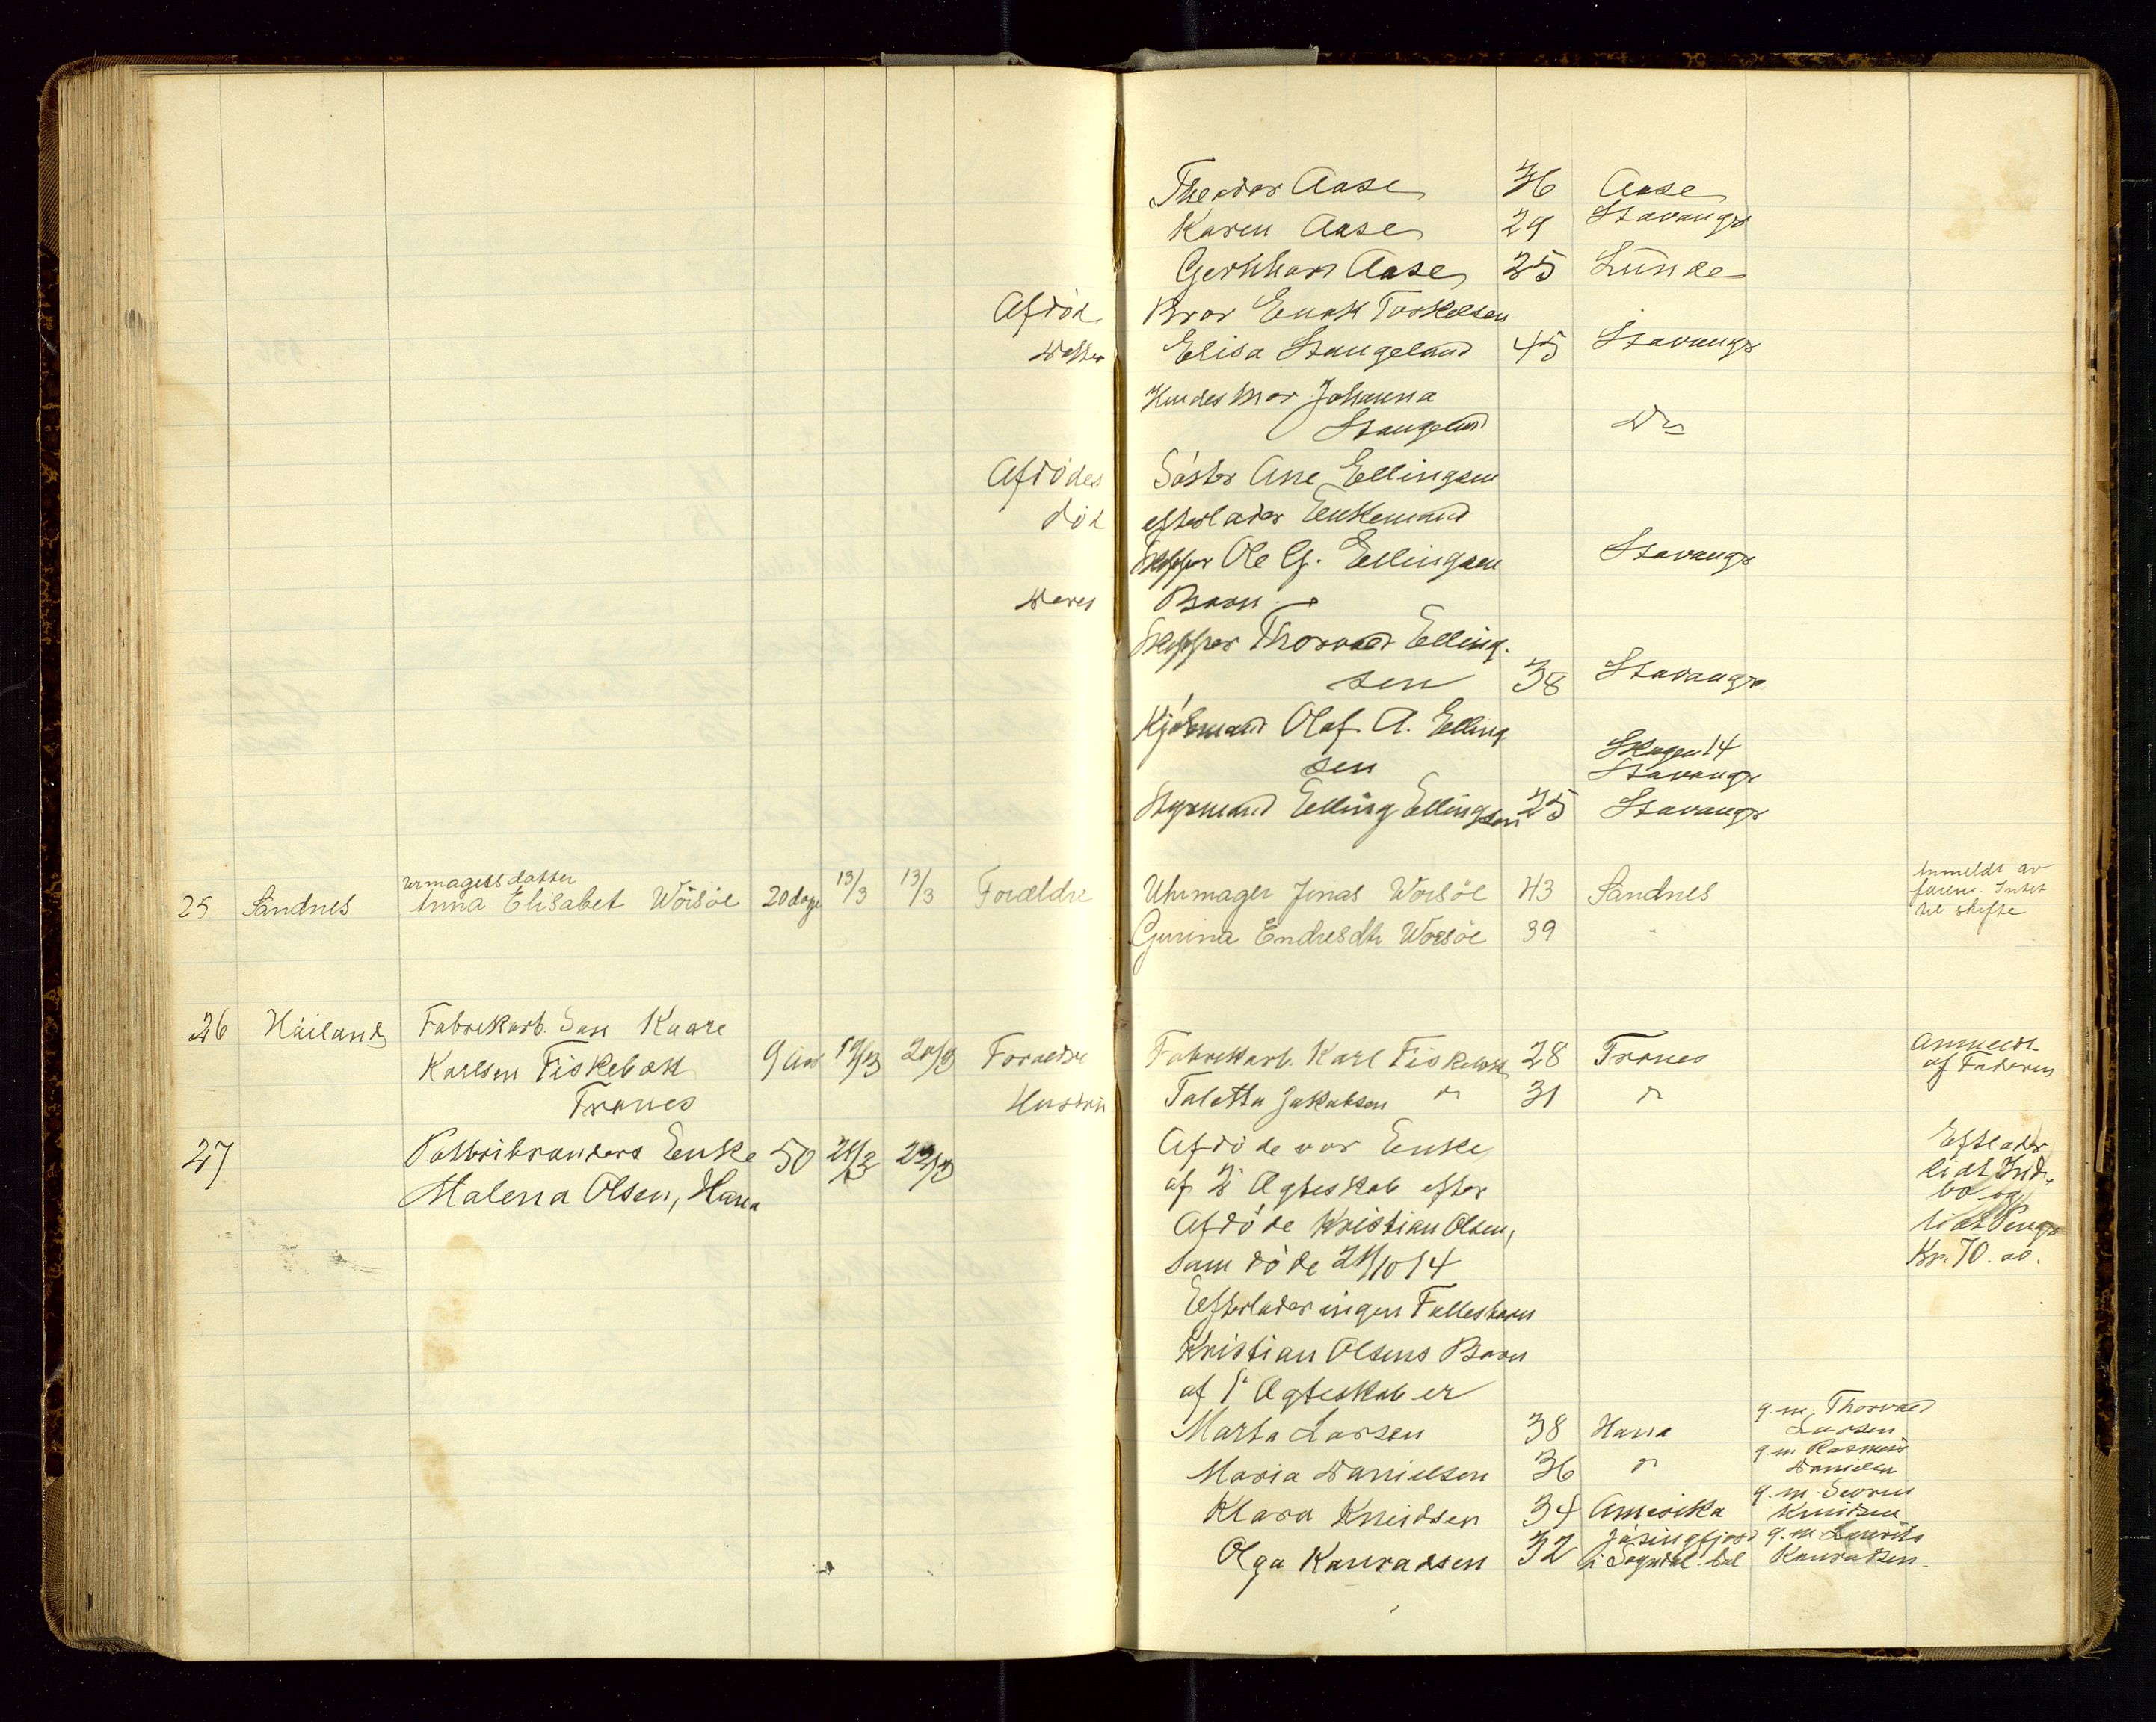 Theodor Aase 36 Aase
Karen Aase 29 Stavanger
Gerhhard Aase 25 Lunde
Afdød Bror Enok Torkelsen
Datter Elisa Stangeland 45 Stavanger
Hendes Mor Johanna
Stangeland Do
Afdødes Søster Ane Ellingsen
død efterlader Enkemand
Skipper Ole G. Ellingsen Stavanger
Deres Barn
Skipper Thorvald Elling-
sen 38 Stavanger
Kjøbmand Olaf A. Elling
sen Skagen 14
Stavanger
Styrmand Elling Ellingsen 25 Stavanger
25 Sandnes Urmagers datter
Anna Elisabet Worsöe 20 dage 13/3 13/3 Forældre Uhrmager Jonas Worsöe 43 Sandnes Anmeldt av
faren. Intet
til skifte
Gurina Endresdtr Worsöe 39 "
26 Høiland Fabrikarb. Søn Kaare
Karlsen Fiskebæk 9 19/3 20/3 Forældre Fabrikarb. Karl Fiskebæk 28 Trones Anmeldt
af Faderen
Trones Hustru Taletta Jakobsen " 31 "
27 Politibranders Enke 50 21/3 22/3 Afdøde var Enke Efterlader
Malena Olsen, Hana af 2 Ægteskab efter lidt Ind-
bo og
Afdøde Kristian Olsen, lidt Penge
som døde 21/10 14 Kr. 70.00.
Efterlader ingen Fællesbarn
Kristian Olsens Barn
af 1' Ægteskab er
Marta Larsen 38 Hana g.m. Thorvald
Larsen
Maria Danielsen 36 " g.m. Rasmus
Danielsen
Klara Knudsen 34 Amerika g.m. Severin
Knudsen
Olga Konradsen 32 Jøsingfjord
i Sogndal. Dal. g.m. Laurits
Konradsen